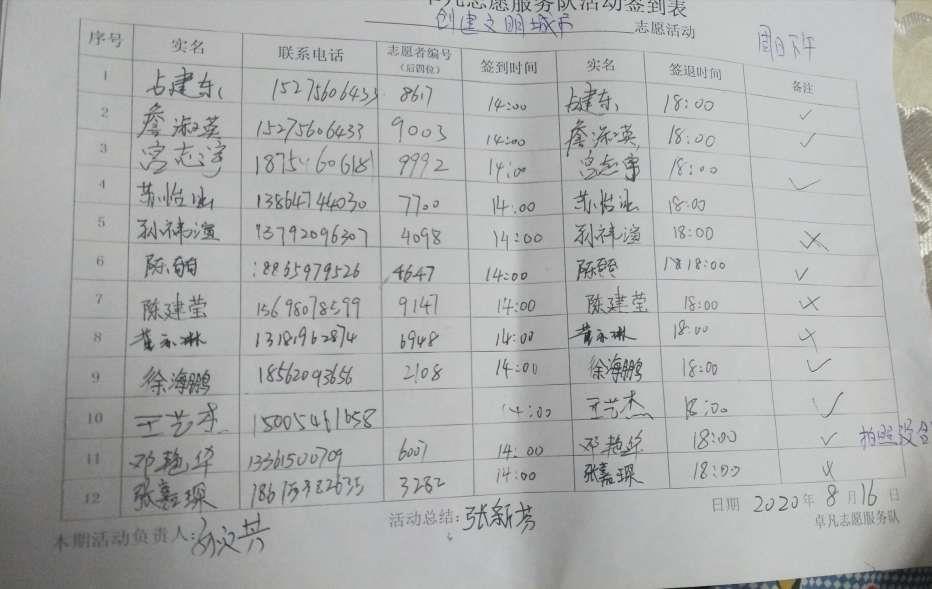 凡志愿服务队活动签到表
创建文明城市 志愿活动 周日下午
序号 实名 联系电话 志愿者编号（后四位） 签到时间 实名 签退时间 备注
1 占建东 15275606433 8617 14:00 占建东 18:00 ✓
2 詹淑英 15275606433 9003 14:00 詹淑英 18:00 ✓
3 宫志宇 9992 14:00 宫志宇 18:00 ✓
4 苏怡 13864744030 7700 14:00 苏怡 18:00
5 孙祎溰 13792096307 4098 14:00 孙祎溰 18:00 ×
6 陈 18865979526 4647 14:00 陈 18:00 ✓
7 陈建莹 15698078599 9147 14:00 陈建莹 18:00 ×
8 黄永琳 13181962874 6948 14:00 黄永琳 18:00 ×
9 徐海鹏 18562093656 2108 14:00 徐海鹏 18:00 ✓
10 王艺杰 15005461658 14:00 王艺杰 18:00 ✓
11 邓艳华 13361500709 6007 14:00 邓艳华 18:00 ✓ 拍照没
12 张嘉琛 18615382635 3282 14:00 张嘉琛 18:00 ×
日期 2020年8月16日
本期活动负责人: 活动总结: 张新芳 卓凡志愿服务队